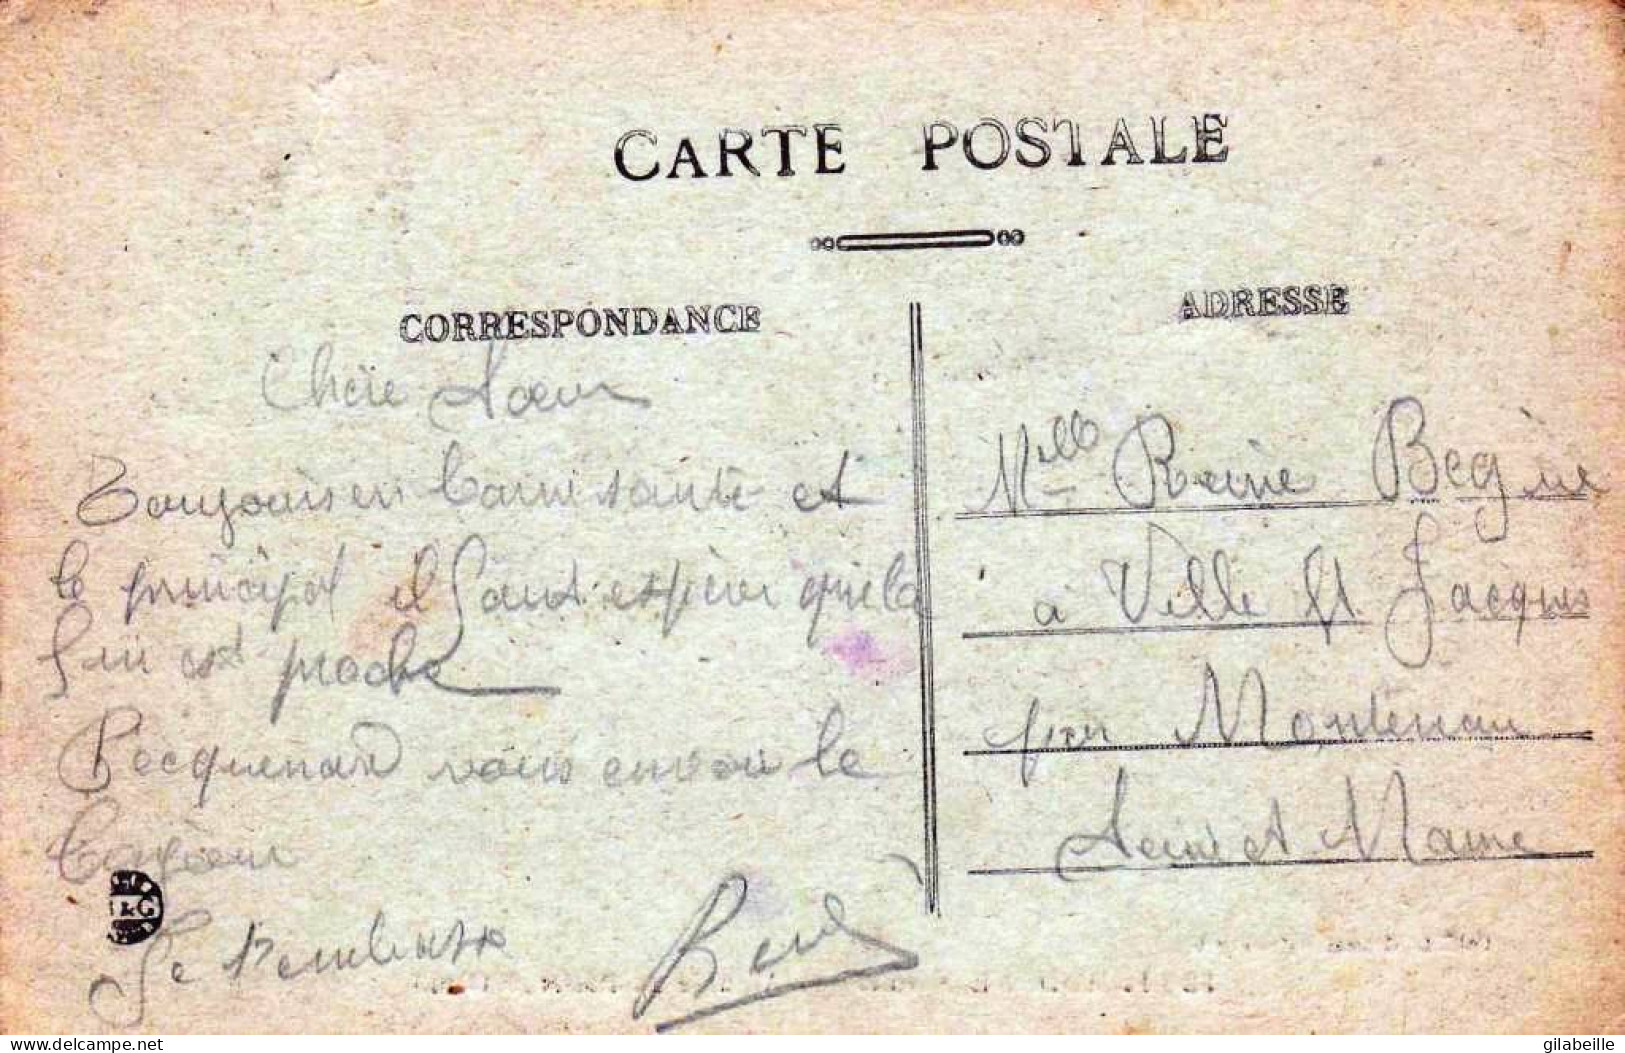 CARTE POSTALE
CORRESPONDANCE
Chère Soeur
Toujours en bonne santé et
le principal il faut espérer que la
fin est proche
Becquenard vous envoie le
bonjour
Je t'embrasse
René
ADRESSE
Mlle Reine Begue
à Ville St Jacques
par Montereau
Seine et Marne
&C
delcampe.net
gilabeille